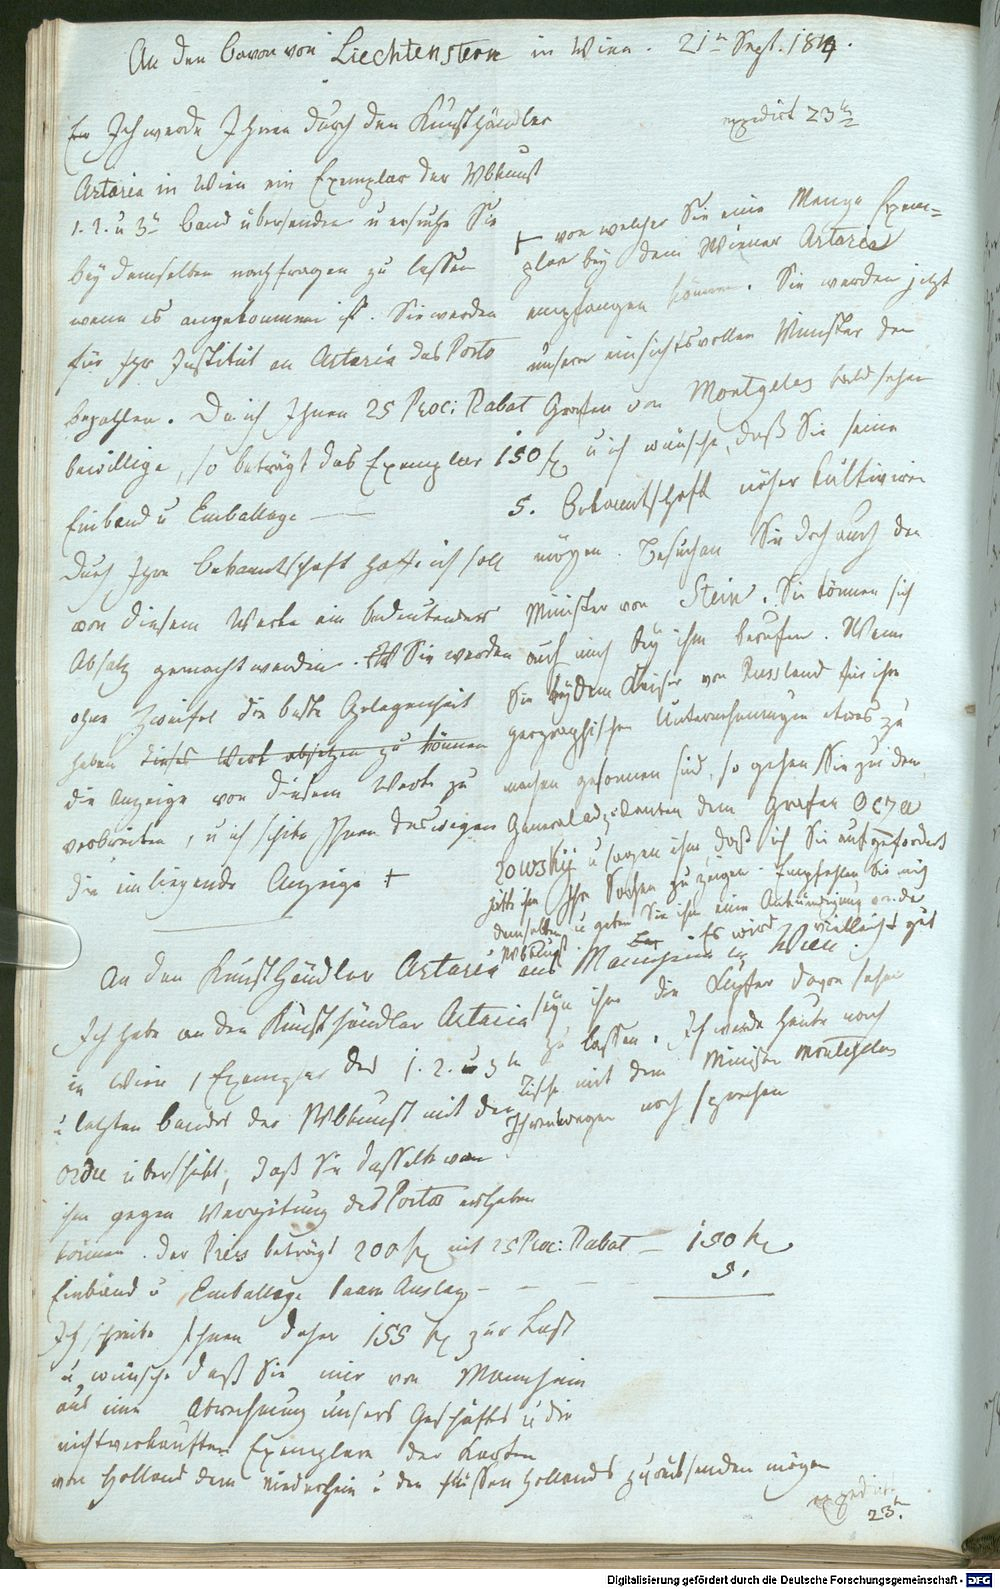 An den Baron von Liechtenstern in Wien. 21n Sept. 1814.
expedirt 23n
Ich werde Ihnen durch den Kunsthändler
Artaria in Wien ein Exemplar der Wbkunst
1. 2. u 3n Band übersenden u ersuche Sie
bey demselben nachfragen zu lassen
wenn es angekommen ist. Sie werden
für Ihr Institut an Artaria das Porto
bezahlen. Da ich Ihnen 25 Proc: Rabat
bewillige, so beträgt das Exemplar 150 f
Einband u Emballage — 5.
Durch Ihre Bekanntschaft hoffe ich soll
von diesem Werke ein bedeutender
Absatz gemacht werden. Sie werden
ohne Zweifel die beste Gelegenheit
haben dieses Werk absetzen zu können
die Anzeige von diesem Werke zu
verbreiten, u ich schike Ihnen deswegen
die einliegende Anzeige +
+ von welcher Sie eine Menge Exem=
plare bey dem Wiener Artaria
empfangen können. Sie werden jetzt
unsern einsichtsvollen Minister den
Grafen von Montgelas bald sehen
u ich wünsche, daß Sie seine
Bekanntschaft näher kultiviren
mögen. Besuchen Sie doch auch den
Minister von Stein. Sie können sich
auf mich bey ihm berufen. Wenn
Sie bey dem Kaiser von Russland für ihre
geographischen Unternehmungen etwas zu
machen gesonnen sind, so gehen Sie zu dem
Generaladjudanten dem Grafen Oza
rowskij u sagen ihm, daß ich Sie aufgefordert
hätte ihm Ihre Sachen zu zeigen. Empfehlen Sie mich
demselben u geben Sie ihm eine Ankündigung von der
Wbkunst. Es wird vielleicht gut
seyn ihm die Kupfer davon sehen
zu lassen. Ich werde heute nach
Tische mit dem Minister Montgelas
Ihrentwegen noch sprechen
An den Kunsthändler Artaria aus Mannheim in Wien.
Ich habe an den Kunsthändler Artaria
in Wien 1 Exemplar des 1. 2. u 3n
u letzten Bandes der Wbkunst mit der
Ordre überschikt, daß Sie dasselbe von
ihm gegen Vergütung des Portos erheben
können. Der Preis beträgt 200 f mit 25 Proc: Rabat — 150 f
Einband u Emballage baare Auslage — 5.
Ich schreibe Ihnen daher 155 f zur Last
u wünsche daß Sie mir von Mannheim
aus eine Abrechnung unsers Geschäfts u die
nichtverkauften Exemplare der Karten
von Holland dem Niederrhein u den Flüssen Hollands zurüksenden mögen
expedirt
23n.
Digitalisierung gefördert durch die Deutsche Forschungsgemeinschaft - DFG